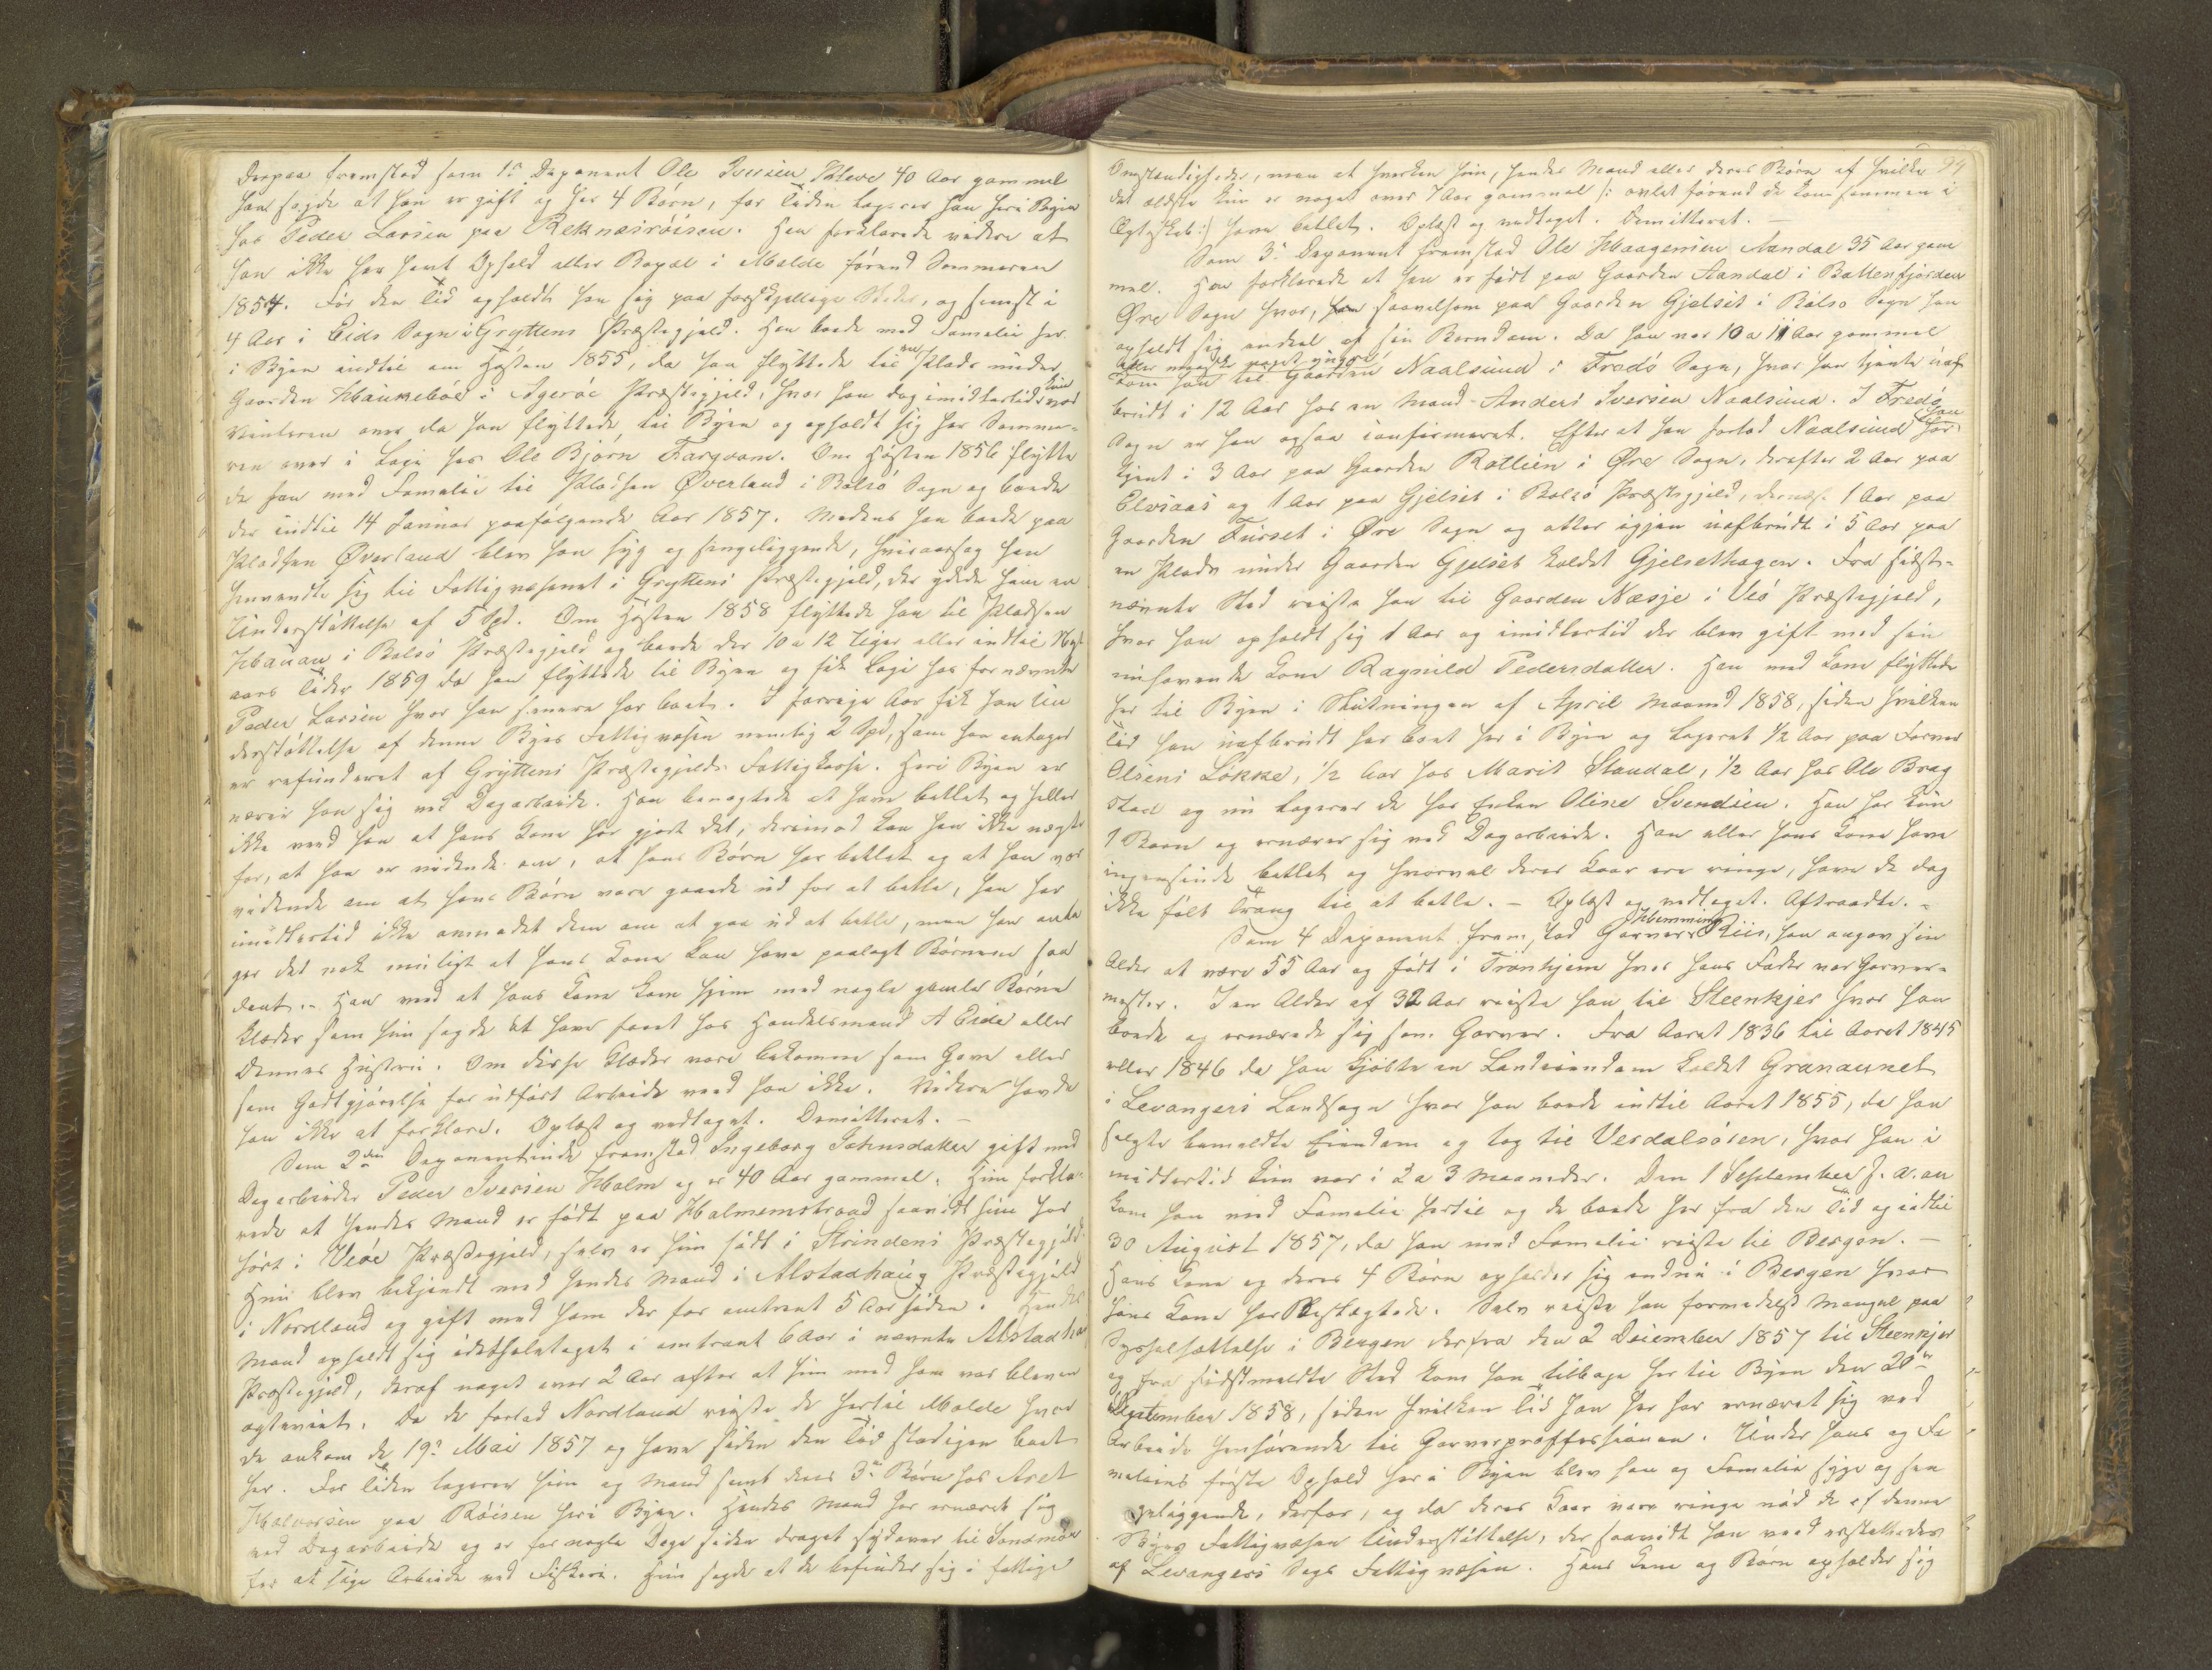 Derpaa fremstod som 1ste Deponent Ole Iversen Kleve 40 Aar gammel
han sagde at han er gift og har 4 Børn, for Tiden logerer han heri Byen
hos Peder Larsen paa Reknesrøisen. Han forklarede videre at
han ikke har havt Ophold eller Bopæl i Molde førend Sommeren
1854. Før den Tid opholdt han sig paa forskjellige Steder, og senest i
4 Aar i Eids Sogn i Gryttens Præstegjeld. Han boede med Familie her
i Byen indtil om Høsten 1855, da han flyttede til en Plads under
Gaarden Haukebøe i Agerøe Præstegjeld, hvor han dog imidlertid kun var
Vinteren over da han flyttede til Byen og opholdt sig her Somme-
ren over i Logi hos Ole Bjørn Fargoam. Om Høsten 1856 flytte
de han med Familie til Pladsen Øverland i Bolsø Sogn og boede
der indtil 14 Januar paafølgende Aar 1857. Medens han boede paa
Pladsen Øverland blev han syg og sengeliggende, hvisaarsag han
henvendte sig til Fattigvæsenet i Gryttens Præstegjeld, der ydede ham en
Understøttelse af 5 Spd. Om Høsten 1858 flyttede han til Pladsen
Hauan i Bolsø Præstegjeld og boede der 10 a 12 Uger eller indtil Nyt
aars Tider 1859 da han flyttede til Byen og fik Logi hos fornævnte
Peder Larsen hvor han senere har boet. I forrige Aar fik han Un
derstøttelse af denne Byes Fattigvæsen nemlig 2 Spd, som han antager
er refunderet af Gryttens Præstegjelds Fattigkasse. Heri Byen er
nærer han sig ved Dagarbeide. Han benegtede at have betlet og heller
ikke veed han at hans Kone har gjort det, derimod kan han ikke negte
for, at han er vidende om, at hans Børn har betlet og at han var
vidende om at hans Børn vare gaaede ud for at betle, han har
imidlertid ikke anmodet dem om at gaa ud at betle, men han anta
ger det nok muligt at hans Kone kan have paalagt Børnene saa
dant. - Han veed at hans Kone kom hjem med nogle gamle Børne
klæder som hun sagde at have faaet hos Handelsmand A Eide eller
dennes Hustru. Om disse Klæder vare bekomne som Gave eller
som Godtgjørelse for udført Arbeide veed han ikke. Videre havde
han ikke at forklare. Oplæst og vedtaget. Demitteret. -
Som 2den Deponentinde fremstod Ingeborg Johnsdatter gift med
Dagarbeider Peder Iversen Holm og er 40 Aar gammel. Hun forkla-
rede at hendes Mand er født paa Holmemstrand saavidt hun har
hørt i Veøe Præstegjeld, selv er hun født i Strindens Præstegjeld.
Hun blev bekjendt med hendes Mand i Alstadhaug Præstegjeld
i Nordland og gift med ham der for omtrent 5 Aar siden. Hendes
Mand opholdt sig idetheletaget i omtrent 6 Aar i nævnte Alstadhaug
Præstegjeld, deraf noget over 2 Aar efter at hun med ham var bleven
egteviet. Da de forlod Nordland reiste de hertil Molde hvor
de ankom de 19de Mai 1857 og have siden den Tid stadigen boet
her. For Tiden logerer hun og Mand samt deres 3de Børn hos Aret
Halvorsen paa Røisen heri Byen. Hendes Mand har ernæret sig
ved Dagarbeide og er for nogle Dage siden draget sydover til Søndmør
for at søge Arbeide ved Fiskeri. Hun sagde at de befinder sig i fattige
94
Omstændigheder, men at hverken hun, hendes Mand eller deres Børn af hvilke
det ældste kun er noget over 7 Aar gammel /: avlet førend de kom sammen i
Egteskab :/ have betlet. Oplæst og vedtaget. Demitteret. -
Som 3de Deponent fremstod Ole Haagensen Aandal 35 Aar gam
mel. Han forklarede at han er født paa Gaarden Aandal i Battenfjorden
Øre Sogn hvor, han saavelsom paa Gaarden Gjelset i Bolsø Sogn han
opholdt sig endeel af sin Barndom. Da han var 10 a 11 Aar gammel
eller maaske noget yngre
kom han til Gaarden Naalsund i Fredø Sogn, hvor han tjente uaf
brudt i 12 Aar hos en Mand Anders Iversen Naalsund. I Fredø
Sogn er han ogsaa confirmeret. Efter at han forlod Naalsund har han
tjent i 3 Aar paa Gaarden Rotlien i Øre Sogn, derefter 2 Aar paa
Elvsaas og 1 Aar paa Gjelset i Bolsø Præstegjeld, dernæst 1 Aar paa
Gaarden Furset i Øre Sogn og atter igjen uafbrudt i 5 Aar paa
en Plads under Gaarden Gjelset kaldet Gjelsethagen. Fra sidst-
nævnte Sted reiste han til Gaarden Nesje i Veø Præstegjeld,
hvor han opholdt sig 1 Aar og imidlertid der blev gift med sin
nuhavende Kone Ragnild Pedersdatter. Han med Kone flyttede
her til Byen i Slutningen af April Maaned 1858, siden hvilken
Tid han uafbrudt har boet her i Byen og logeret 1/2 Aar paa Farver
Olsens Løkke, 1/2 Aar hos Marit Standal, 1/2 Aar hos Ole Brag
stad og nu logerer de hos Enken Oline Svendsen. Han har kun
1 Barn og ernærer sig ved Dagarbeide. Han eller hans Kone have
ingensinde betlet og hvorvel deres Kaar ere ringe, have de dog
ikke følt Trang til at betle. - Oplæst og vedtaget. Aftraadte. -
Som 4 Deponent frem, tod Garver Hemming Riis, han angav sin
Alder at være 55 Aar og født i Tronhjem hvor hans Fader var Garver-
mester. I en Alder af 32 Aar reiste han til Steenkjer hvor han
boede og ernærede sig som Garver. Fra Aaret 1836 til Aaret 1845
eller 1846 da han kjøbte en Landeiendom kaldet Granaunet
i Levangers Landsogn hvor han boede indtil Aaret 1855, da han
solgte bemeldte Eiendom og tog til Verdalsøren, hvor han i
midlertid kun var i 2 a 3 Maaneder. Den 1 September f. a. an
kom han med Familie hertil og de boede her fra den Tid og indtil
30 August 1857, da han med Familie reiste til Bergen. -
Hans Kone og deres 4 Børn opholder sig endnu i Bergen hvor
hans Kone har Beslægtede. Selv reiste han formedelst Mangel paa
Sysselsættelse i Bergen derfra den 2 December 1857 til Steenkjer
og fra sidstmeldte Sted kom han tilbage her til Byen den 20de
September 1858, siden hvilken Tid han her har ernæret sig ved
Arbeide henhørende til Garverproffessionen. Under hans og Fa
meliens første Ophold her i Byen blev han og Familie syge og sen
geliggende, derfor, og da deres Kaar vare ringe nød de af denne
Byes Fattigvæsen Understøttelse, der saavidt han veed erstattedes
af Levangers Sogs Fattigvæsen. Hans Kone og Børn opholder sig